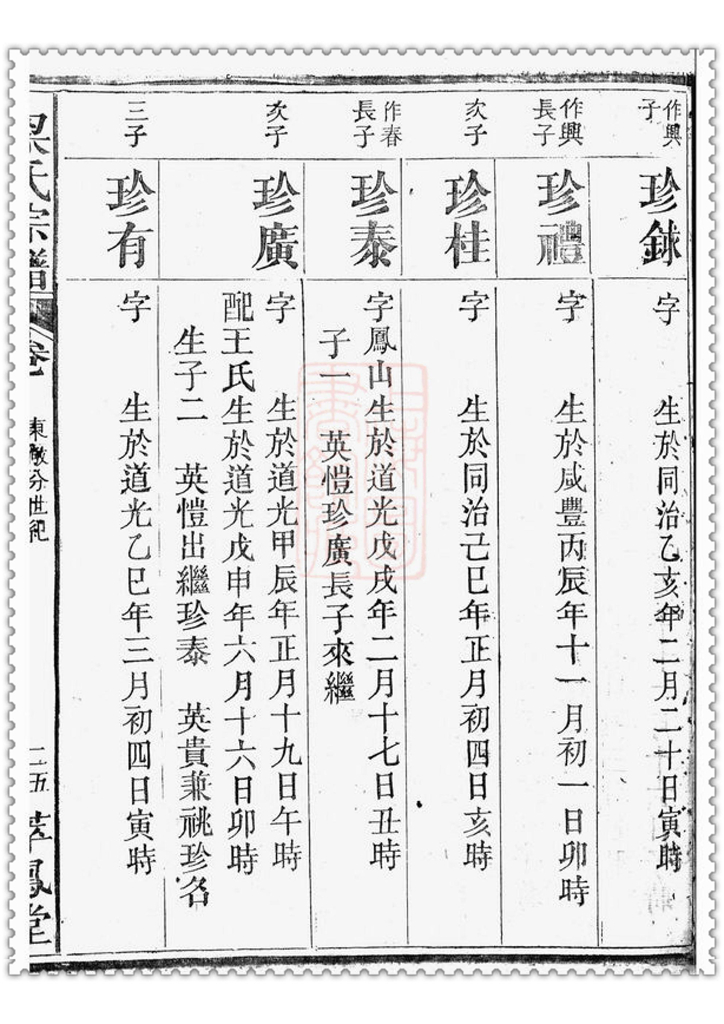 作興
子
珍銶
字 生於同治乙亥年二月二十日寅時
作興
長子
珍禮
字 生於咸豐丙辰年十一月初一日卯時
次子
珍桂
字 生於同治己巳年正月初四日亥時
作春
長子
珍泰
字鳳山生於道光戊戌年二月十七日丑時
子一 英愷珍廣長子來繼
次子
珍廣
字 生於道光甲辰年正月十九日午時
配王氏生於道光戊申年六月十六日卯時
生子二 英愷出繼珍泰 英貴兼祧珍名
三子
珍有
字 生於道光乙巳年三月初四日寅時
氏宗譜 卷 東敞分世紀 二五 萃鳳堂